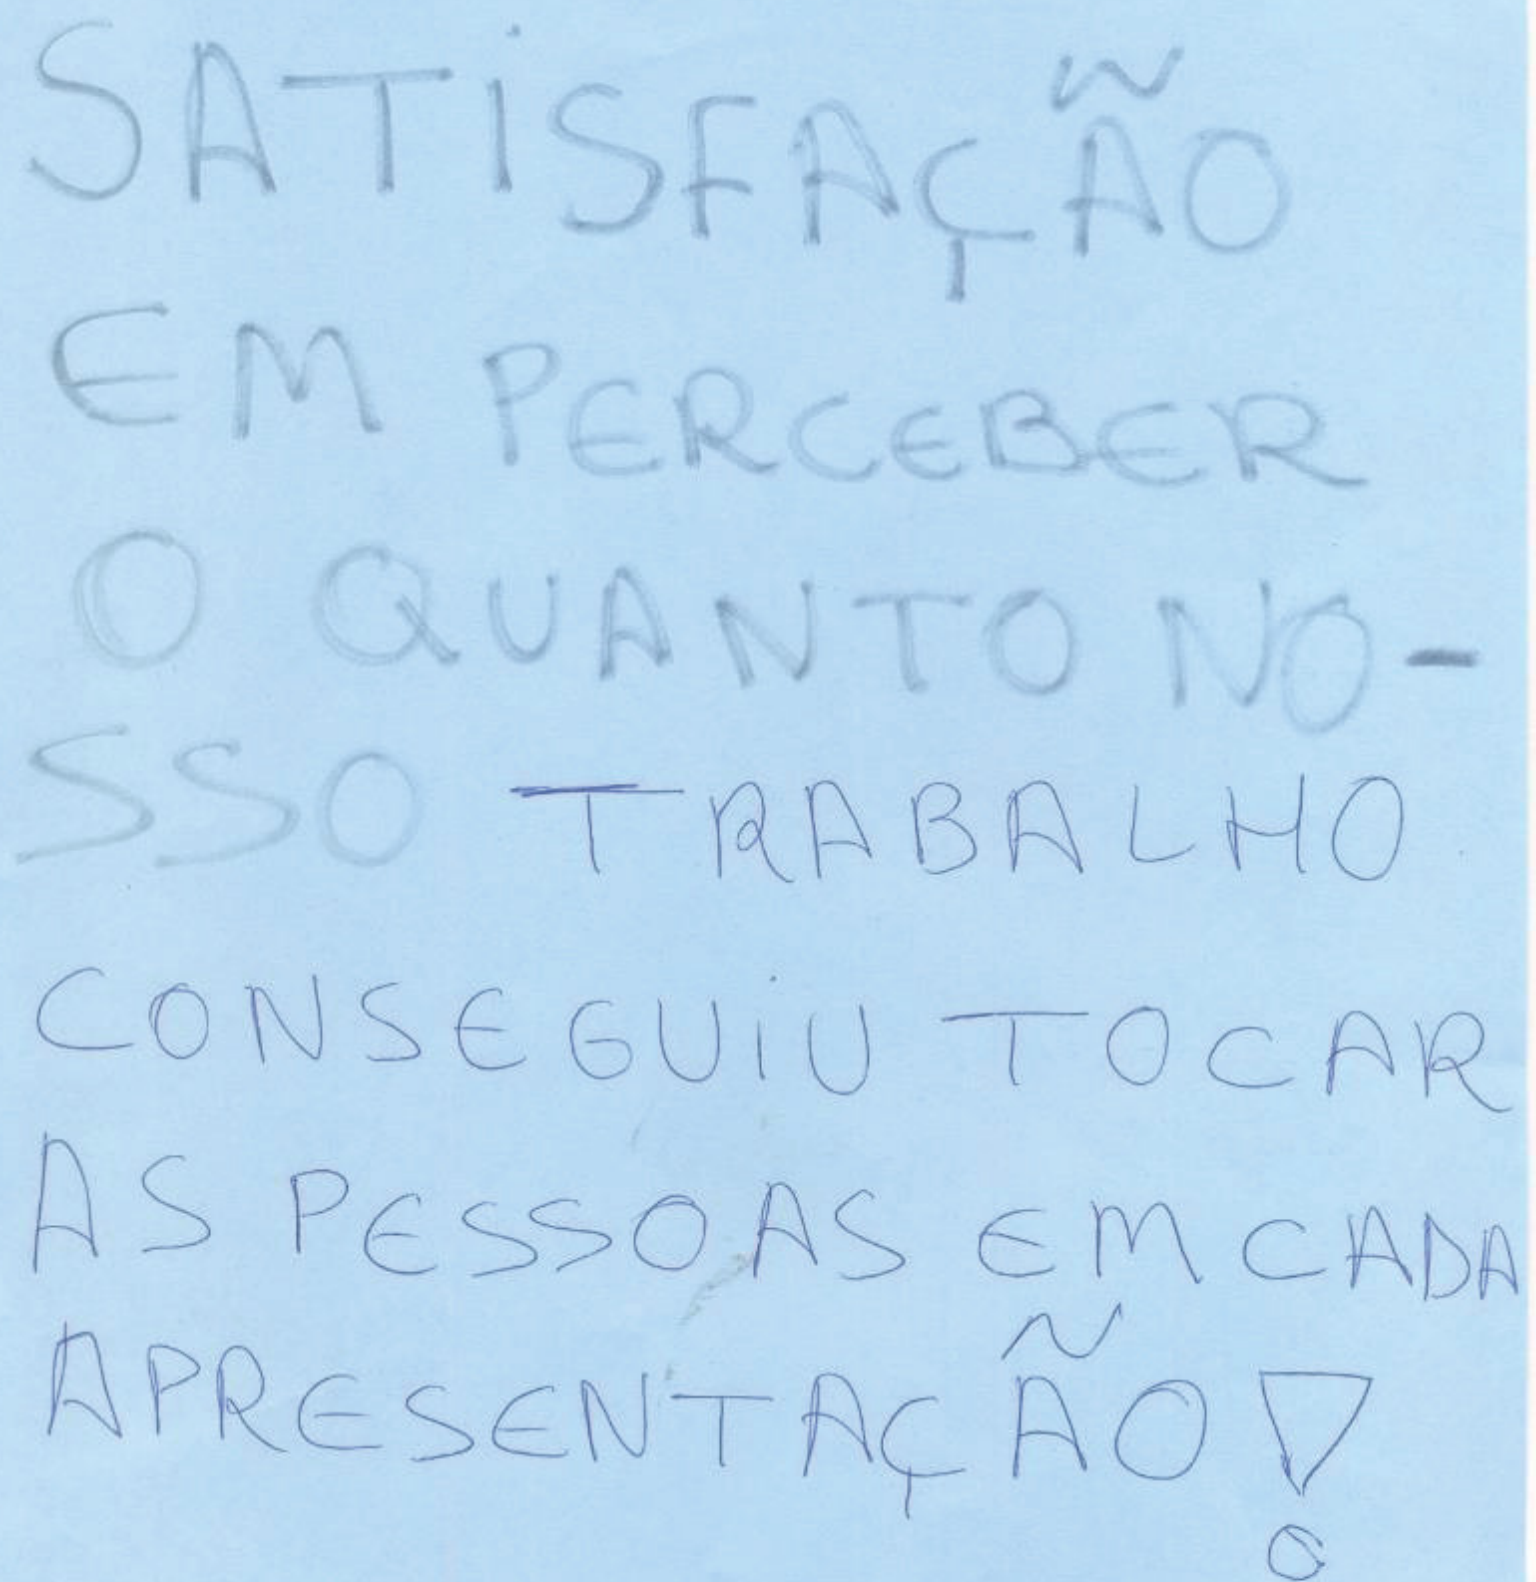 SATISFAÇÃO
EM PERCEBER
O QUANTO NO-
SSO TRABALHO
CONSEGUIU TOCAR
AS PESSOAS EM CADA
APRESENTAÇÃO!